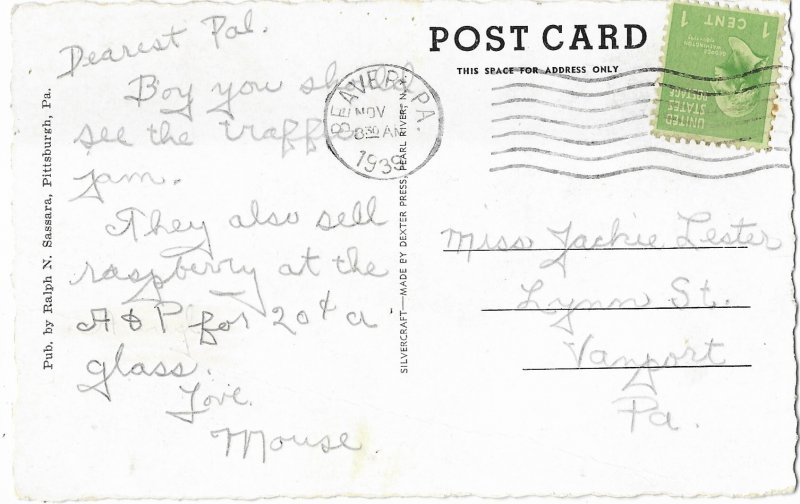 Dearest Pal.
Boy you should
see the traffic
jam.
They also sell
raspberry at the
A & P for 20¢ a
glass.
Love.
Mouse
Pub. by Ralph N. Sassara, Pittsburgh, Pa.
SILVERCRAFT—MADE BY DEXTER PRESS, PEARL RIVER, N.
POST CARD
THIS SPACE FOR ADDRESS ONLY
BEAVER, PA.
NOV
8 30 AM
1939
1 CENT 1
GEORGE
WASHINGTON
UNITED
STATES
POSTAGE
Miss Jackie Lester
Lynn St.
Vanport
Pa.